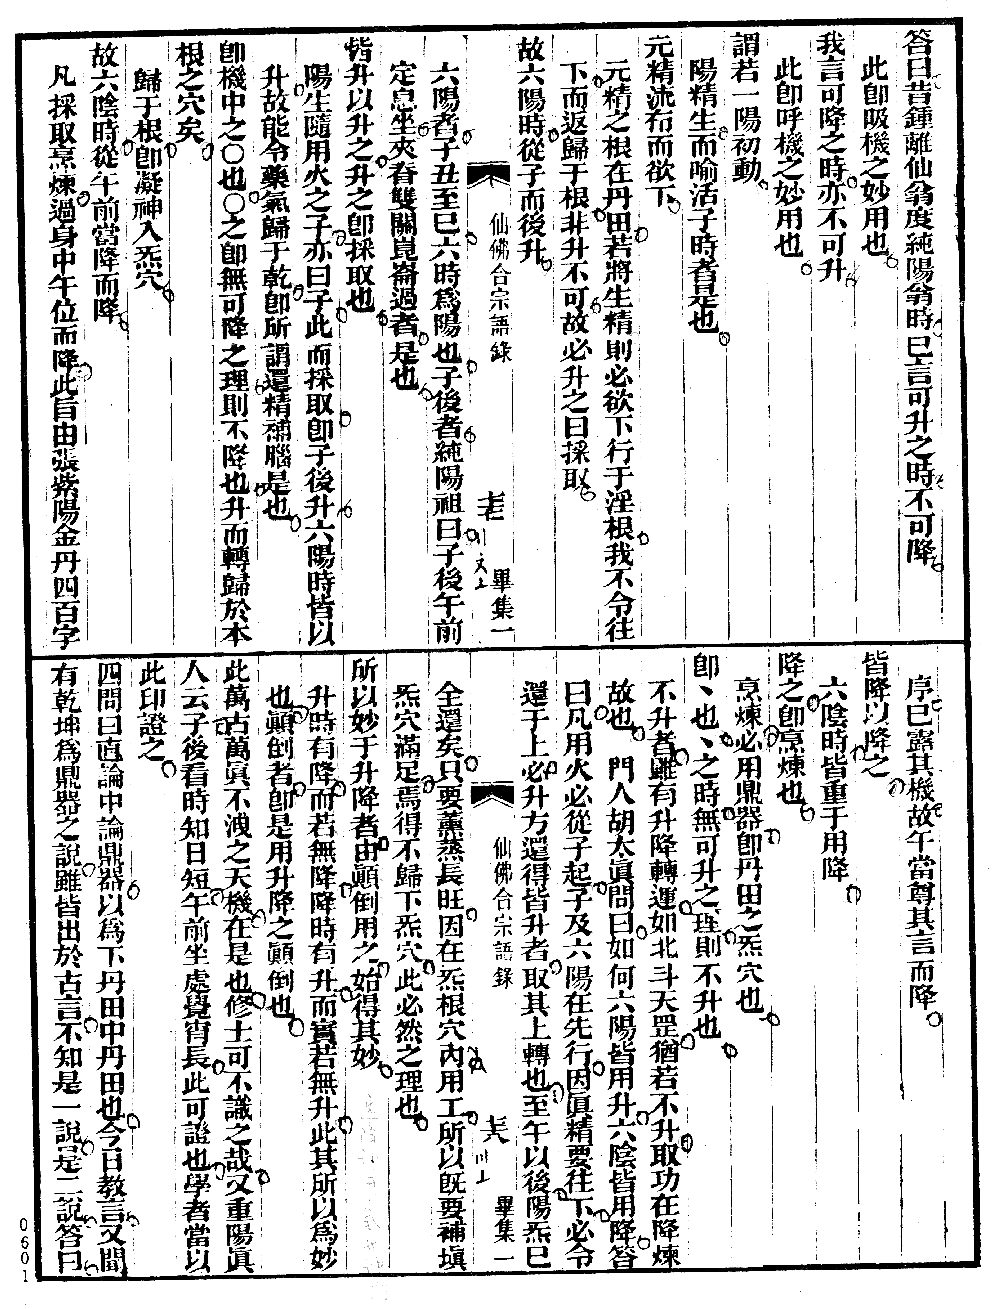 答曰昔鍾離仙翁度純陽翁時巳言可升之時不可降
此卽吸機之妙用也
我言可降之時亦不可升
此卽呼機之妙用也
謂若一陽初動
陽精生而喻活子時者是也
元精流布而欲下
元精之根在丹田若將生精則必欲下行于淫根我不令往
下而返歸于根非升不可故必升之曰採取
故六陽時從子而後升
仙佛合宗語錄
畢集一
六陽者子丑至巳六時爲陽也子後者純陽祖曰子後午前
定息坐夾脊雙關崑崙過者是也
皆升以升之升之卽採取也
陽生隨用火之子亦曰子此而採取卽子後升六陽時皆以
升故能令藥氣歸于乾卽所謂還精補腦是也
卽機中之○也○之卽無可降之理則不降也升而轉歸於本
根之穴矣
歸于根卽凝神入炁穴
故六陰時從午前當降而降
凡採取烹煉過身中午位而降此旨由張紫陽金丹四百字
序巳露其機故午當尊其言而降
皆降以降之
六陰時皆重于用降
降之卽烹煉也
烹煉必用鼎器卽丹田之炁穴也
卽丶也丶之時無可升之理則不升也
不升者雖有升降轉運如北斗天罡猶若不升取功在降煉
故也 門人胡太眞問曰如何六陽皆用升六陰皆用降答
曰凡用火必從子起子及六陽在先行因眞精要往下必令
還于上必升方還得皆升者取其上轉也至午以後陽炁巳
仙佛合宗語錄
畢集一
全還矣只要薰蒸長旺因在炁根穴內用工所以旣要補塡
炁穴滿足焉得不歸下炁穴此必然之理也
所以妙于升降者由顚倒用之始得其妙
升時有降而若無降降時有升而實若無升此其所以爲妙
也顚倒者卽是用升降之顚倒也
此萬古萬眞不洩之天機在是也修士可不識之哉又重陽眞
人云子後看時知日短午前坐處覺宵長此可證也學者當以
此印證之
四問曰直論中論鼎器以爲下丹田中丹田也今日教言又聞
有乾坤爲鼎器之說雖皆出於古言不知是一說是二說答曰
0601